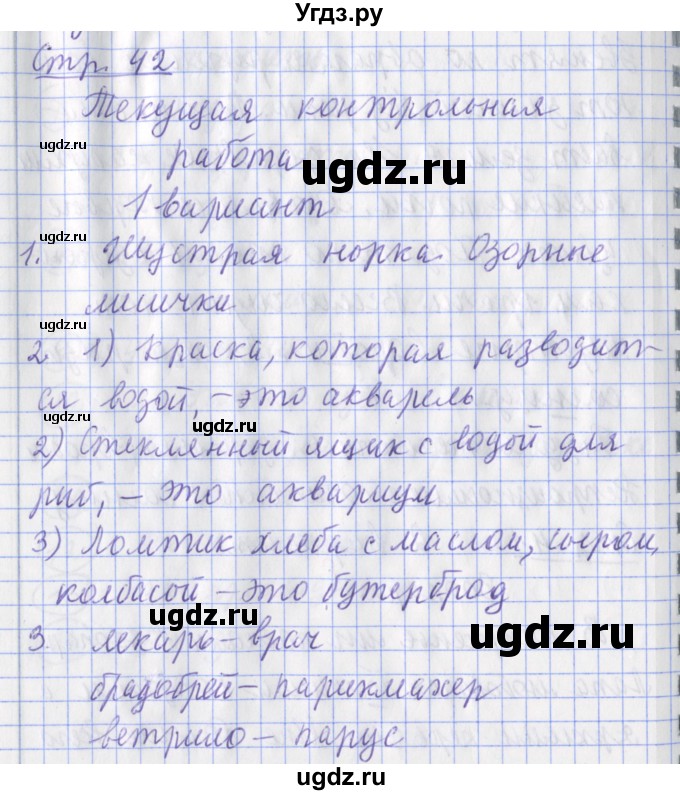 Угдз.ру
Стр. 42
Текущая контрольная
ugdz.ru
работа
ugdz.ru
1 вариант
ugdz.ru
1. Шустрая норка. Озорные
лисички
ugdz.ru
2 1) Краска, которая разводит-
ся водой, – это акварель
ugdz.ru
ugdz.ru
2) Стеклянный ящик с водой для
рыб, – это аквариум
ugdz.ru
3) Ломтик хлеба с маслом, сыром,
колбасой – это бутерброд
ugdz.ru
ugdz.ru
3. лекарь – врач
брадобрей – парикмахер
ugdz.ru
ветрило – парус
ugdz.ru